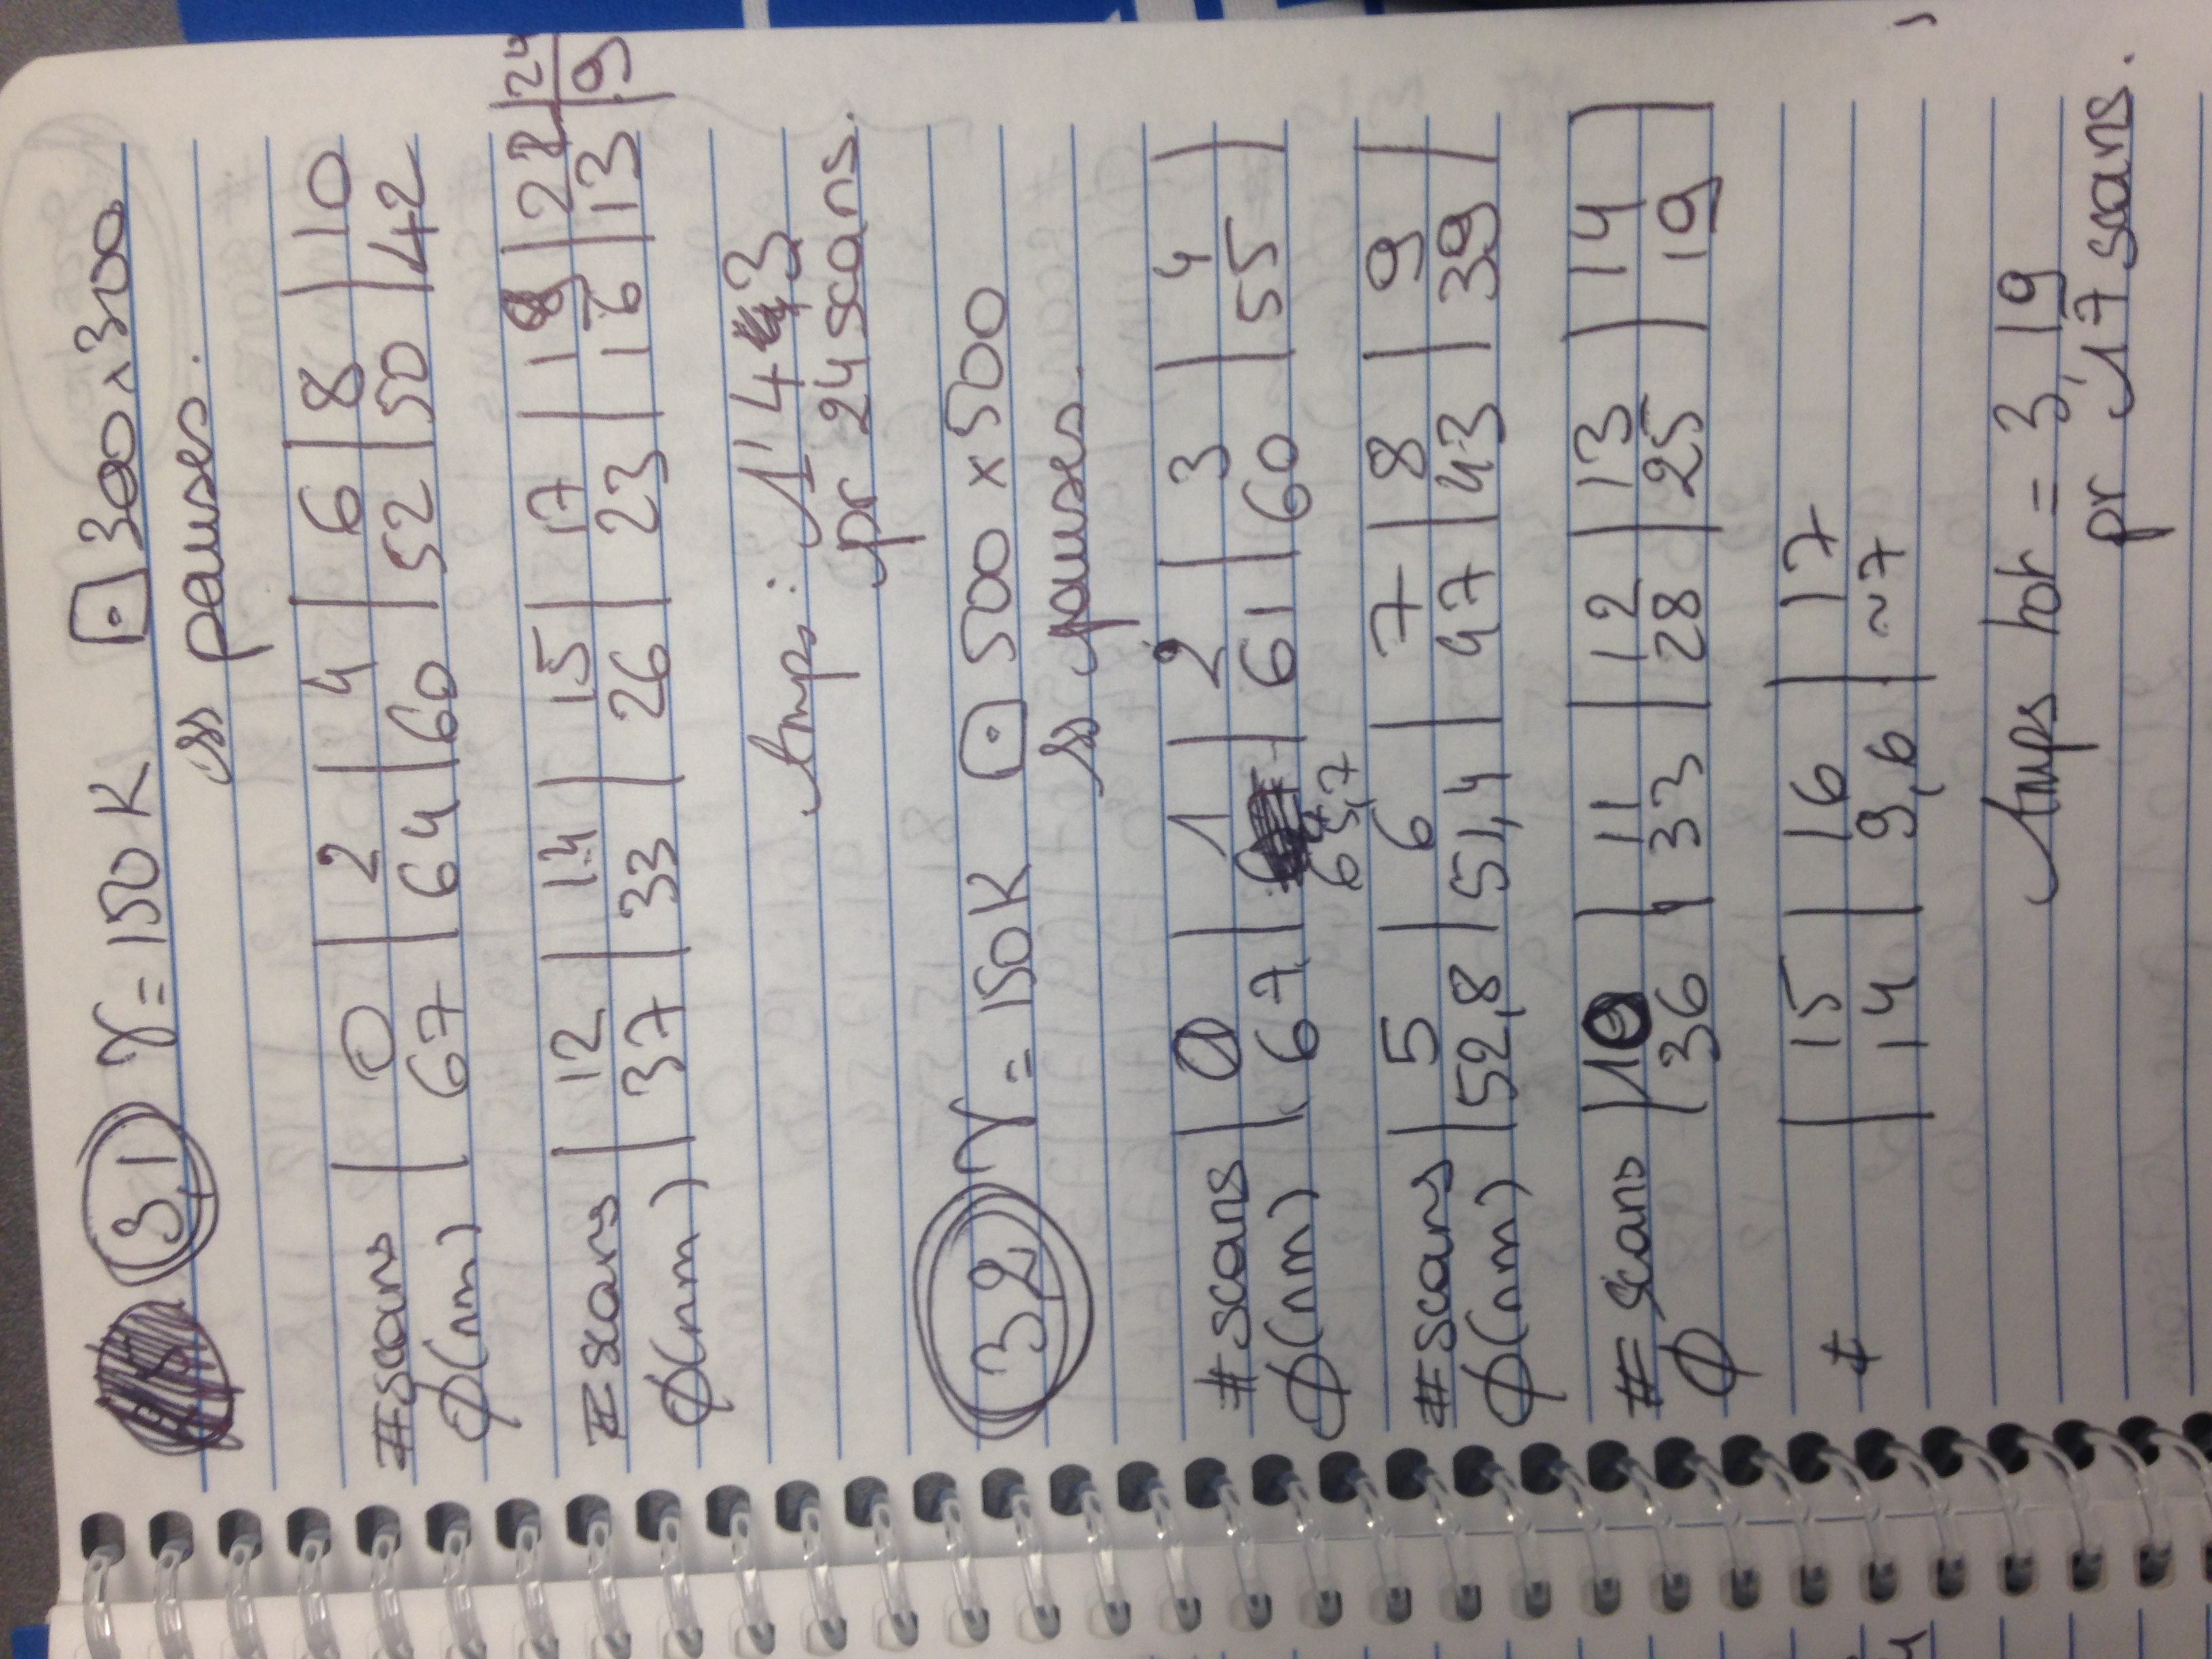 3,1 γ = 150 K ⊡ 300 x 300
ss pauses.
#scans | 0 | 2 | 4 | 6 | 8 | 10
ϕ(nm) | 67 | 64 | 60 | 52 | 50 | 42
#scans | 12 | 14 | 15 | 17 | 19 | 22 | 24
ϕ(nm) | 37 | 33 | 26 | 23 | 16 | 13 | 9
tmps : 1'43
pr 24 scans.
3,2 γ = 150 K ⊡ 500 x 500
ss pauses.
#scans | 0 | 1 | 2 | 3 | 4 |
ϕ(nm) | 67 | 65,7 | 61 | 60 | 55 |
#scans | 5 | 6 | 7 | 8 | 9 |
ϕ(nm) | 52,8 | 51,4 | 47 | 43 | 39 |
# scans | 10 | 11 | 12 | 13 | 14 |
ϕ | 36 | 33 | 28 | 25 | 19 |
# | 15 | 16 | 17
| 14 | 9,6 | ~7
tmps tot = 3,19
pr 17 scans.